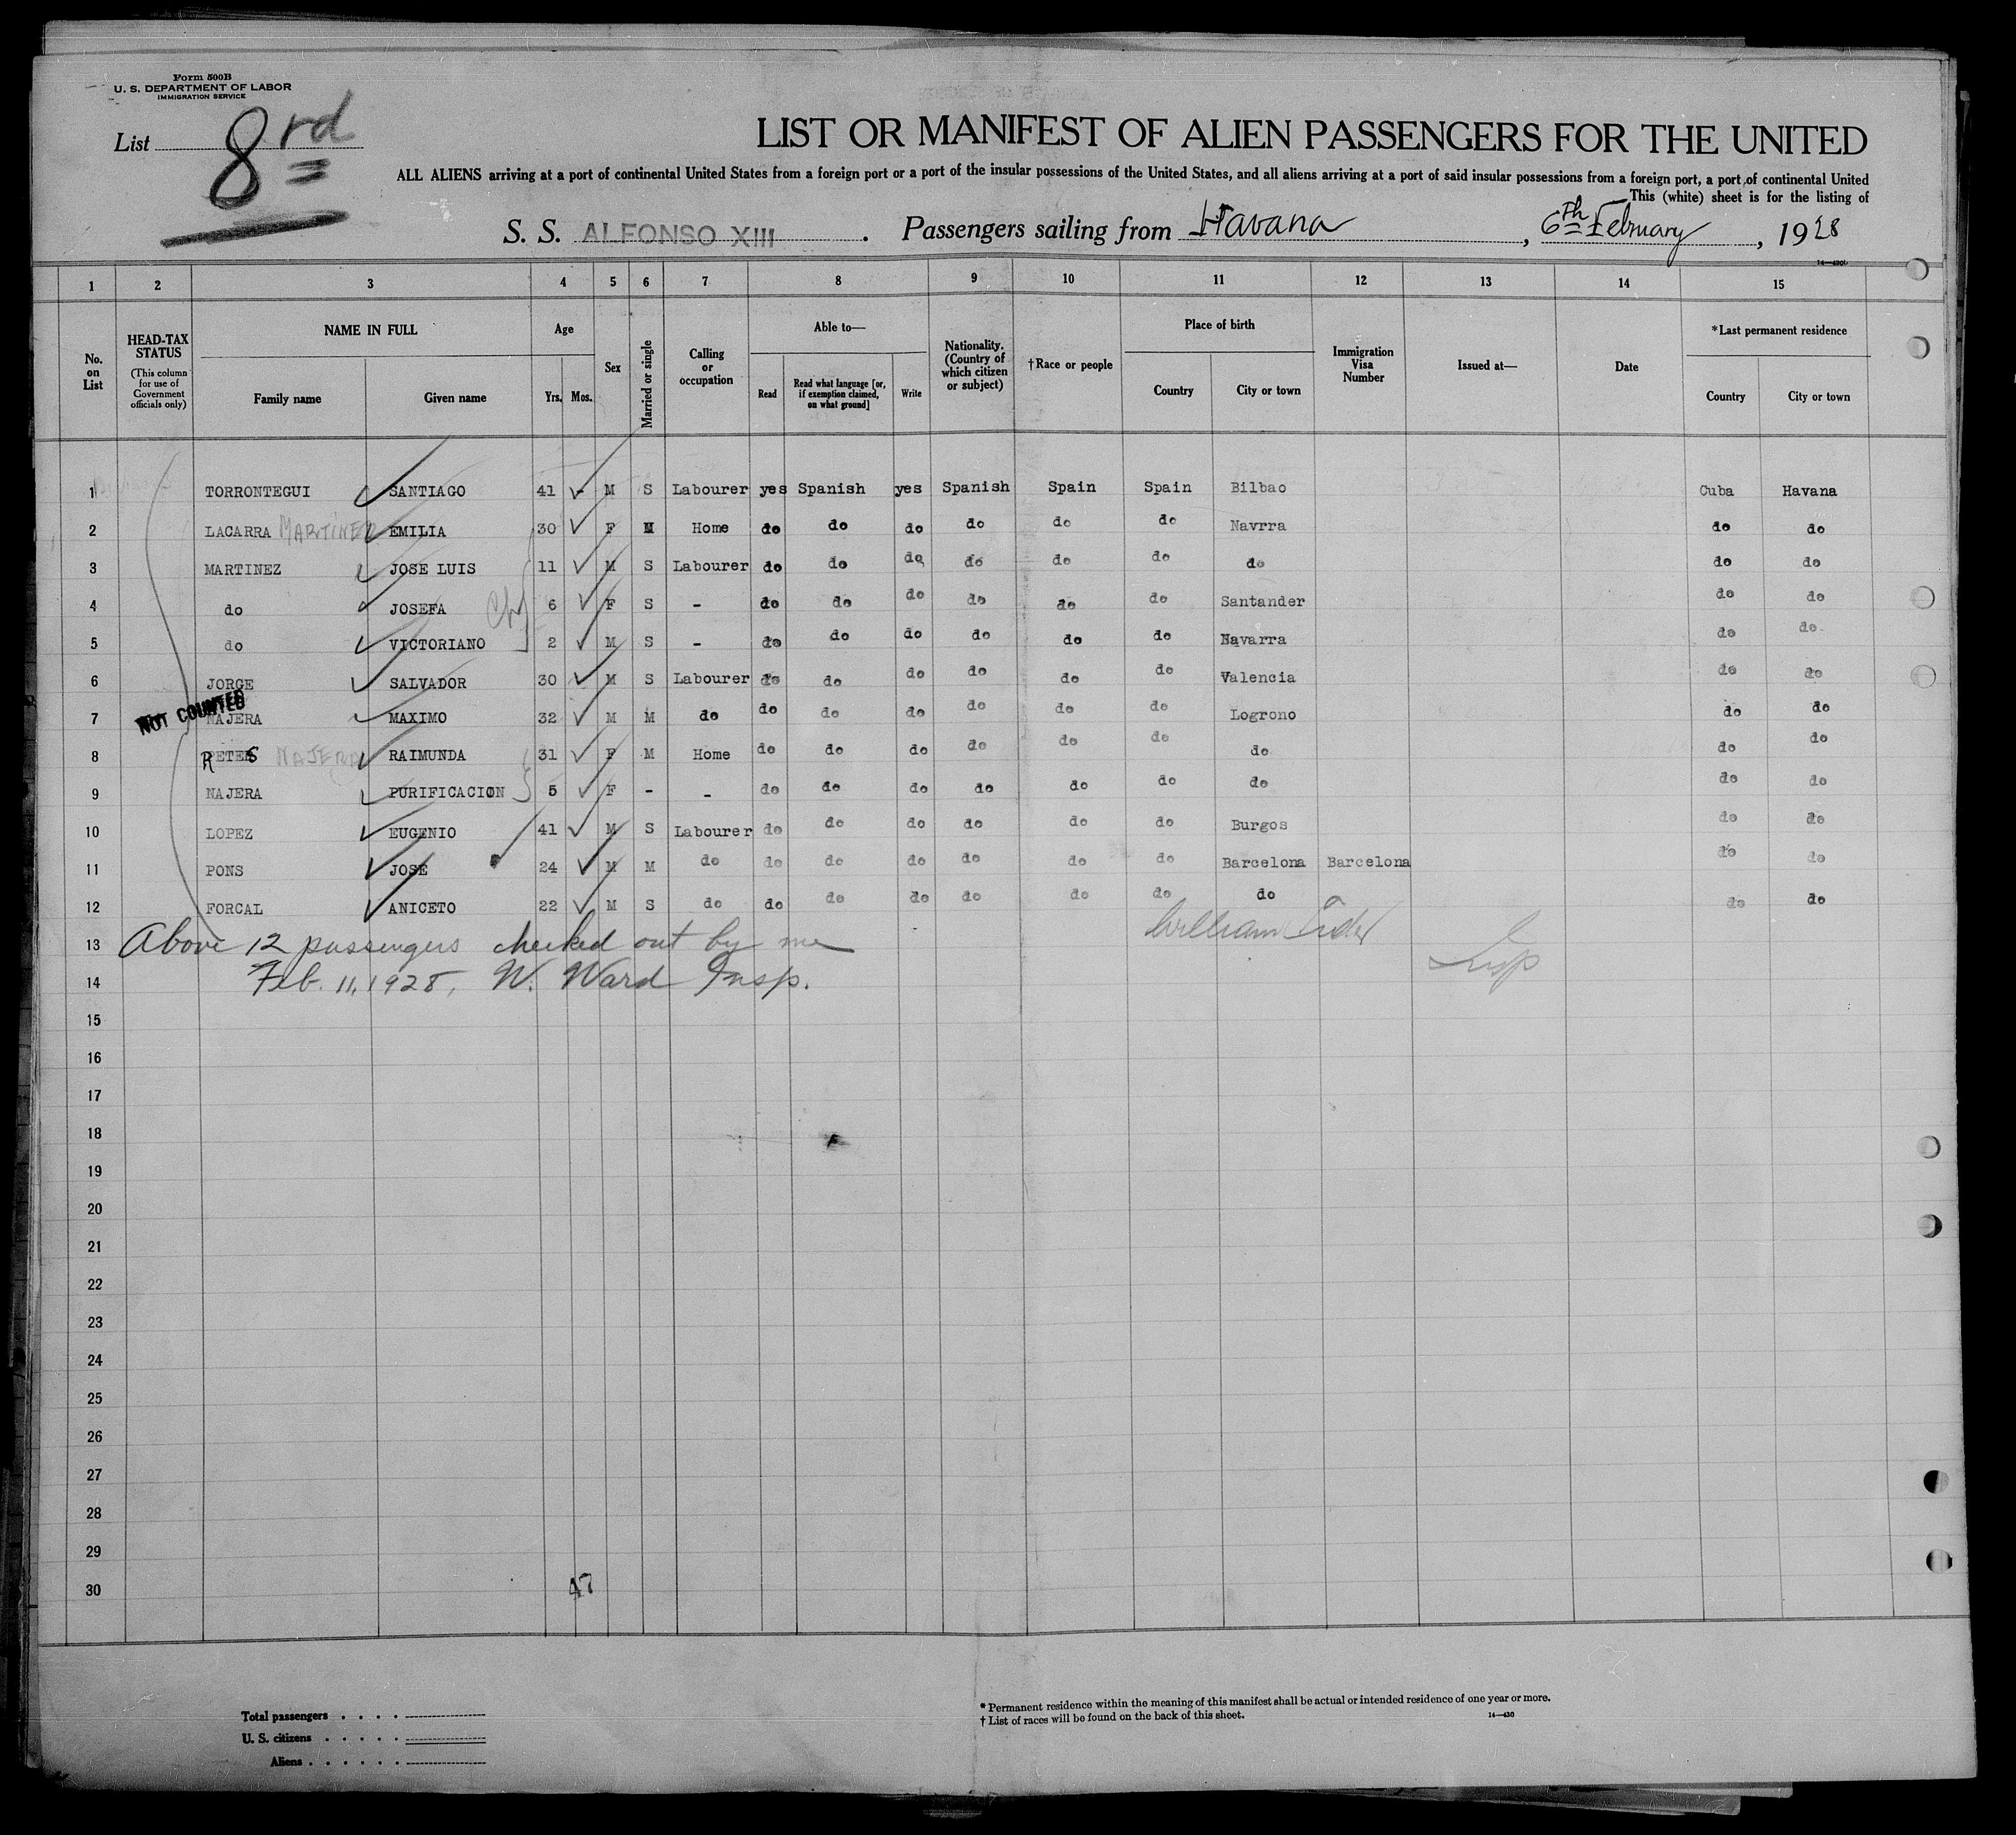 Form 500B
U. S. DEPARTMENT OF LABOR
IMMIGRATION SERVICE
List 8rd
LIST OR MANIFEST OF ALIEN PASSENGERS FOR THE UNITED
ALL ALIENS arriving at a port of continental United States from a foreign port or a port of the insular possessions of the United States, and all aliens arriving at a port of said insular possessions from a foreign port, a port of continental United
This (white) sheet is for the listing of
S. S. ALFONSO XIII . Passengers sailing from Havana , 6th February , 1928
1 2 3 4 5 6 7 8 9 10 11 12 13 14 15
No. on List HEAD-TAX STATUS (This column for use of Government officials only) NAME IN FULL Family name Given name Age Yrs. Mos. Sex Married or single Calling or occupation Able to— Read Read what language [or, if exemption claimed, on what ground] Write Nationality. (Country of which citizen or subject) †Race or people Place of birth Country City or town Immigration Visa Number Issued at— Date *Last permanent residence Country City or town
1 TORRONTEGUI SANTIAGO 41 - M S Labourer yes Spanish yes Spanish Spain Spain Bilbao Cuba Havana
2 LACARRA MARTINEZ EMILIA 30 F M Home do do do do do do Navrra do do
3 MARTINEZ JOSE LUIS 11 M S Labourer do do do do do do do do do
4 do JOSEFA 6 F S - do do do do do do Santander do do
5 do VICTORIANO 2 M S - do do do do do do Navarra do do
6 JORGE SALVADOR 30 M S Labourer do do do do do do Valencia do do
NOT COUNTED
7 NAJERA MAXIMO 32 M M do do do do do do do Logrono do do
8 RETES NAJERA RAIMUNDA 31 F M Home do do do do do do do do do
9 NAJERA PURIFICACION 5 F - - do do do do do do do do do
10 LOPEZ EUGENIO 41 M S Labourer do do do do do do Burgos do do
11 PONS JOSE 24 M M do do do do do do do Barcelona Barcelona do do
12 FORCAL ANICETO 22 M S do do do do do do do do do do
13 Above 12 passengers checked out by me William
14 Feb. 11, 1928, W. Ward Insp. Insp
15
16
17
18
19
20
21
22
23
24
25
26
27
28
29
30 47
Total passengers . . . .
U. S. citizens . . . . .
Aliens . . . . . .
* Permanent residence within the meaning of this manifest shall be actual or intended residence of one year or more.
† List of races will be found on the back of this sheet.